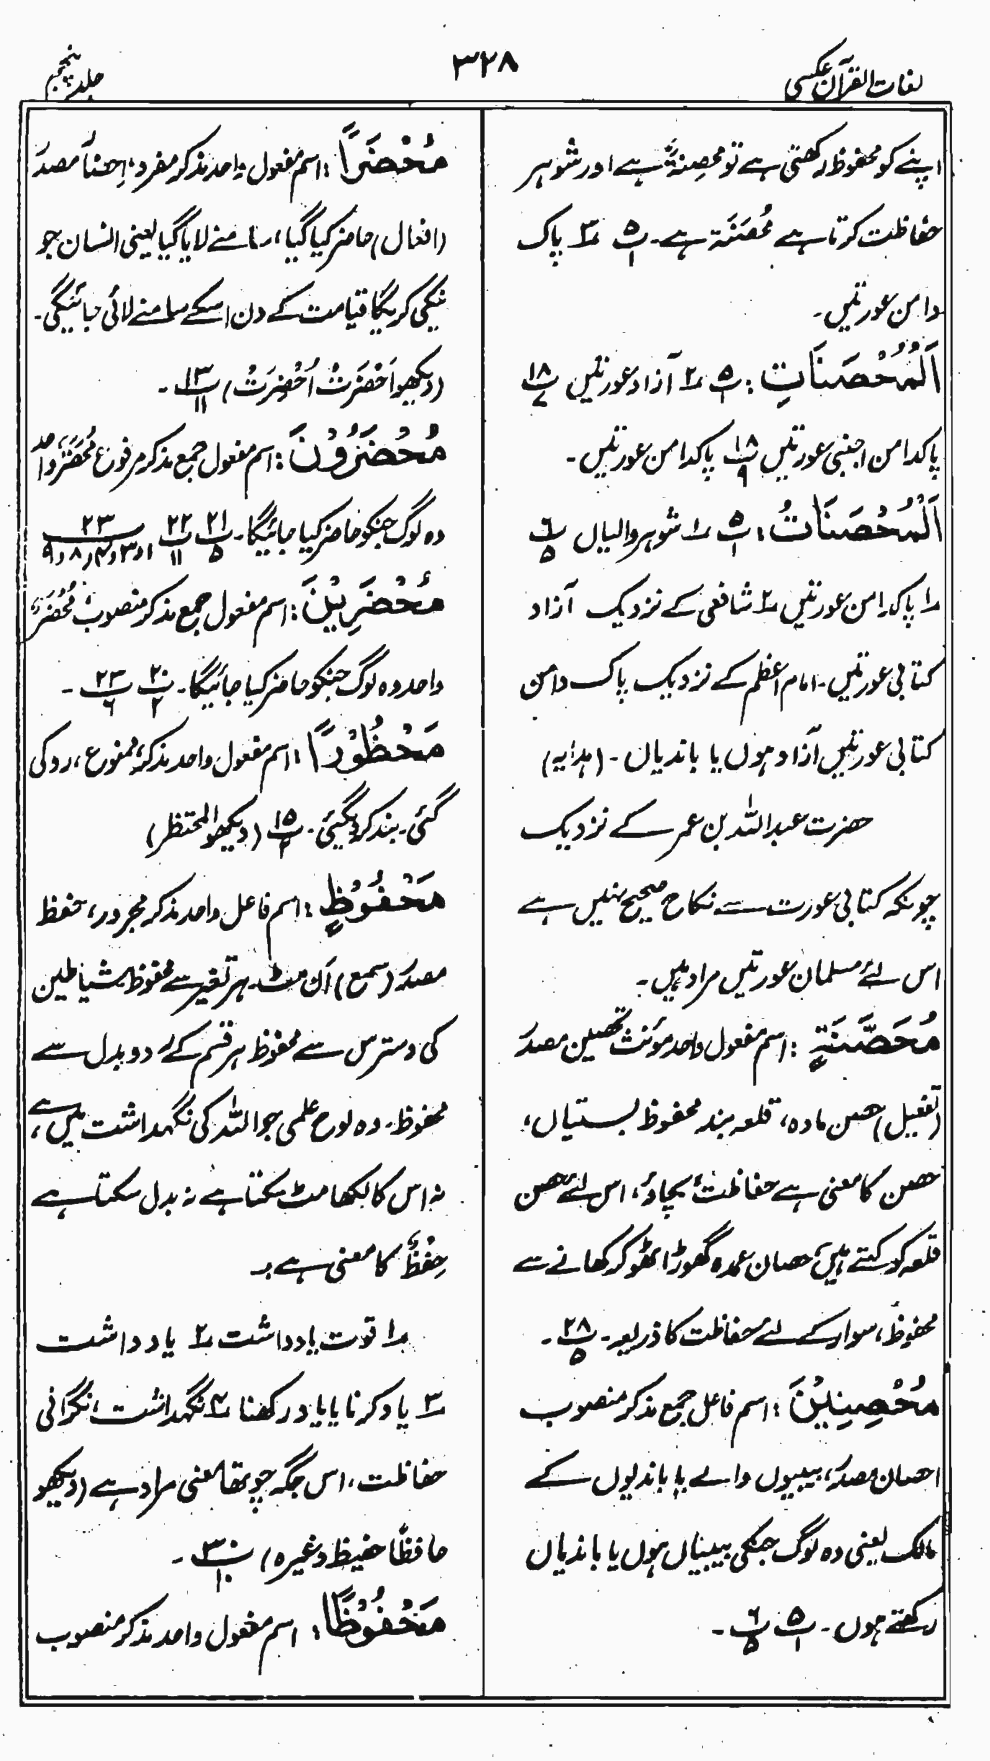 لغات القرآن عکسی
۳۲۸
جلد پنجم
اپنے کو محفوظ رکھتی ہے تو محصِنۃٌ ہے اور شوہر
حفاظت کرتا ہے مُحصَنَۃ ہے۔ پ۵/۱ ۳؎ پاک
دامن عورتیں۔
اَلْمُحْصَنَاتِ : پ۵/۱ ۲؎ آزاد عورتیں پ۱۸/۷
پاکدامن اجنبی عورتیں پ۱۸/۹ پاکدامن عورتیں۔
اَلْمُحْصَنَاتُ : پ۵/۱ ۱؎ شوہر والیاں پ۶/۵
۱؎ پاکدامن عورتیں ۲؎ شافعی کے نزدیک آزاد
کتابی عورتیں۔ امام اعظم کے نزدیک پاک دامن
کتابی عورتیں آزاد ہوں یا باندیاں۔ (ہدایہ)
حضرت عبداللہ بن عمر کے نزدیک
چونکہ کتابی عورت سے نکاح صحیح نہیں ہے
اس لئے مسلمان عورتیں مراد ہیں۔
مُحَصَّنَةٍ : اسم مفعول واحد مؤنث تحصین مصدر
(تفعیل) حصن مادہ، قلعہ بند محفوظ بستیاں،
حصن کا معنی ہے حفاظت، بچاؤ، اس لئے حصن
قلعہ کو کہتے ہیں، حصان عمدہ گھوڑا ٹھوکر کھانے سے
محفوظ، سوار کے لئے حفاظت کا ذریعہ۔ پ۲۸/۵۔
مُحْصِنِيْنَ : اسم فاعل جمع مذکر منصوب
احصان مصدر، بیبیوں والے یا باندیوں کے
مالک یعنی وہ لوگ جنکی بیبیاں ہوں یا باندیاں
رکھتے ہوں۔ پ۵/۱ پ۶/۵۔
مُحْضَرًا : اسم مفعول واحد مذکر مفرد، احضاراً مصدر
(افعال) حاضر کیا گیا، سامنے لایا گیا یعنی انسان جو
نیکی کریگا قیامت کے دن اسکے سامنے لائی جائیگی۔
(دیکھو اَحْضَرَتْ اُحْضِرَتْ) پ۳/۱۱۔
مُحْضَرُوْنَ : اسم مفعول جمع مذکر مرفوع مُحْضَرٌ واحد
وہ لوگ جنکو حاضر کیا جائیگا۔ پ۲۱/۵ پ۲۲/۱۱ پ۲۳/۱ و ۳ و ۴ و ۸ و ۹
مُحْضَرِيْنَ : اسم مفعول جمع مذکر منصوب مُحْضَرٌ
واحد وہ لوگ جنکو حاضر کیا جائیگا۔ پ۲۰/۲ پ۲۳/۶۔
مَحْظُوْرًا : اسم مفعول واحد مذکر، ممنوع، روکی
گئی۔ بند کردیگئی۔ پ۱۵/۲ (دیکھو المحتظر)
مَحْفُوْظٍ : اسم فاعل واحد مذکر مجرور، حفظ
مصدر (سمع) اَن مٹ۔ ہر تغیر سے محفوظ شیاطین
کی دسترس سے محفوظ ہر قسم کے رد و بدل سے
محفوظ۔ وہ لوح علمی جو اللہ کی نگہداشت میں ہے،
نہ اس کا لکھا مٹ سکتا ہے نہ بدل سکتا ہے
حِفْظٌ کا معنی ہے :۔
۱؎ قوت یادداشت ۲؎ یادداشت
۳؎ یاد کرنا یا یاد رکھنا ۴؎ نگہداشت، نگرانی
حفاظت، اس جگہ چوتھا معنی مراد ہے (دیکھو
حافظًا حفیظ وغیرہ) پ۳۰/۱۰۔
مَحْفُوْظًا : اسم مفعول واحد مذکر منصوب